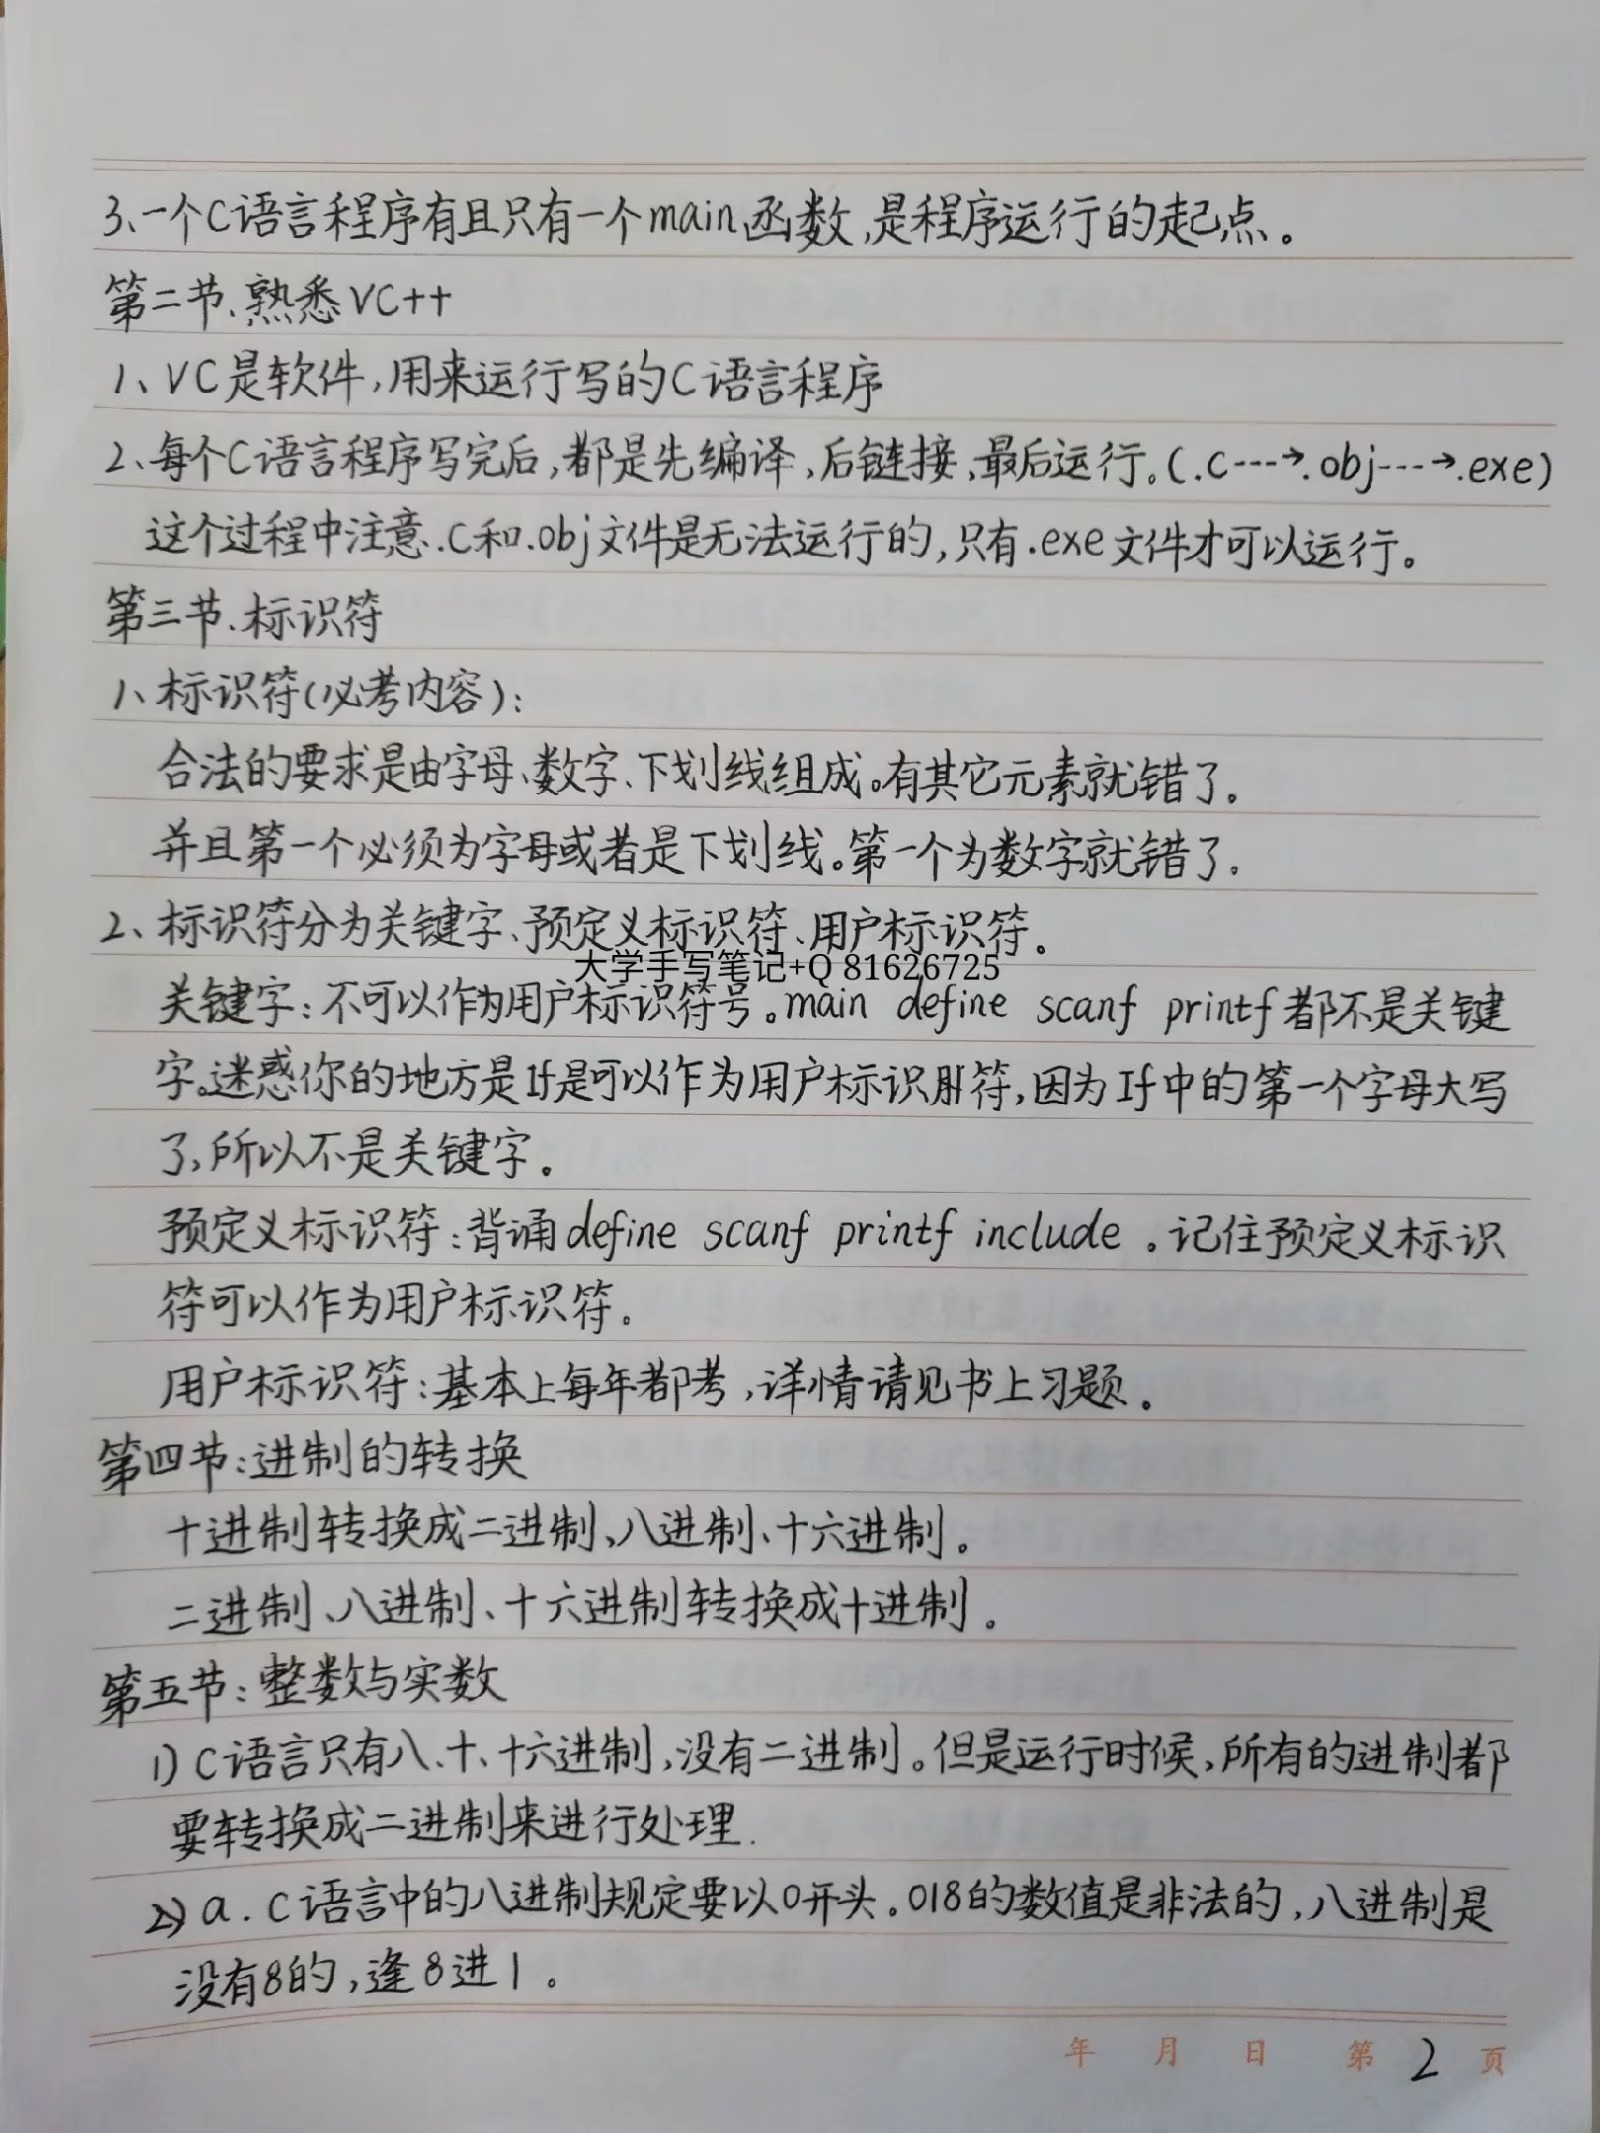 3、一个C语言程序有且只有一个main函数,是程序运行的起点。
第二节、熟悉VC++
1、VC是软件,用来运行写的C语言程序
2、每个C语言程序写完后,都是先编译,后链接,最后运行。(.c---→.obj---→.exe)
这个过程中注意.C和.obj文件是无法运行的,只有.exe文件才可以运行。
第三节、标识符
1、标识符(必考内容):
合法的要求是由字母、数字、下划线组成。有其它元素就错了。
并且第一个必须为字母或者是下划线。第一个为数字就错了.
2、标识符分为关键字、预定义标识符、用户标识符。
大学手写笔记+Q 81626725
关键字:不可以作为用户标识符号。main define scanf printf都不是关键
字。迷惑你的地方是If是可以作为用户标识符,因为If中的第一个字母大写
了,所以不是关键字。
预定义标识符:背诵define scanf printf include。记住预定义标识
符可以作为用户标识符。
用户标识符:基本上每年都考,详情请见书上习题。
第四节:进制的转换
十进制转换成二进制、八进制、十六进制。
二进制、八进制、十六进制转换成十进制。
第五节:整数与实数
1)C语言只有八、十、十六进制,没有二进制。但是运行时候,所有的进制都
要转换成二进制来进行处理.
2)a.C语言中的八进制规定要以0开头。018的数值是非法的,八进制是
没有8的,逢8进1。
年 月 日 第 2 页